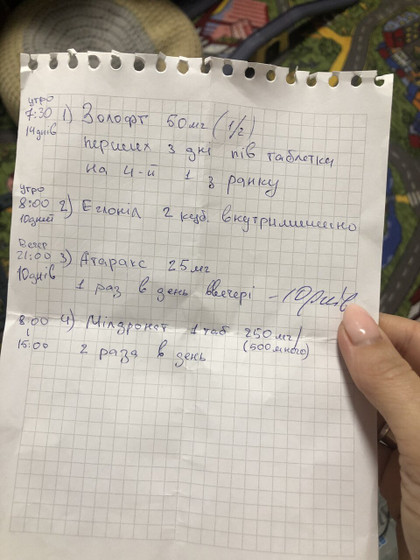 утро
7:30 1) Золофт 50мг (1/2)
14днів
перших 3 дні пів таблетки
на 4-й 1 з ранку
утро
8:00 2) Еглоніл 2 куб. внутримишечно
10дней
Вечер
21:00 3) Атаракс 25мг
10днів
1 раз в день ввечері – 10 днів
8:00 4) Мілдронат 1 таб 250мг/
(500много)
15:00 2 раза в день